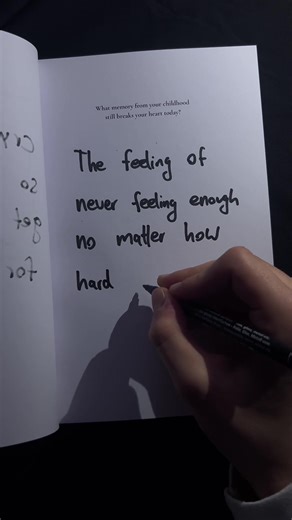 What memory from your childhood
still breaks your heart today?
The feeling of
never feeling enough
no matter how
hard
cry
so
get
for